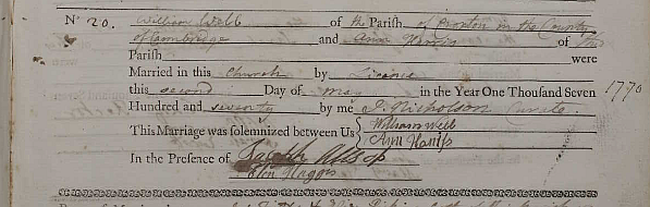 No 20. William Webb of the Parish of in the County
of Cambridge and Ann of this
Parish were
Married in this Church by Licence
this second Day of May in the Year One Thousand Seven 1770
Hundred and seventy by me J. Nicholson Curate.
This Marriage was solemnized between Us William Webb
Ann
In the Presence of Joseph